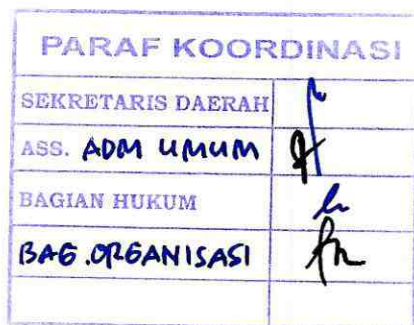 PARAF KOORDINASI
SEKRETARIS DAERAH
ASS. ADM UMUM
BAGIAN HUKUM
BAG. ORGANISASI